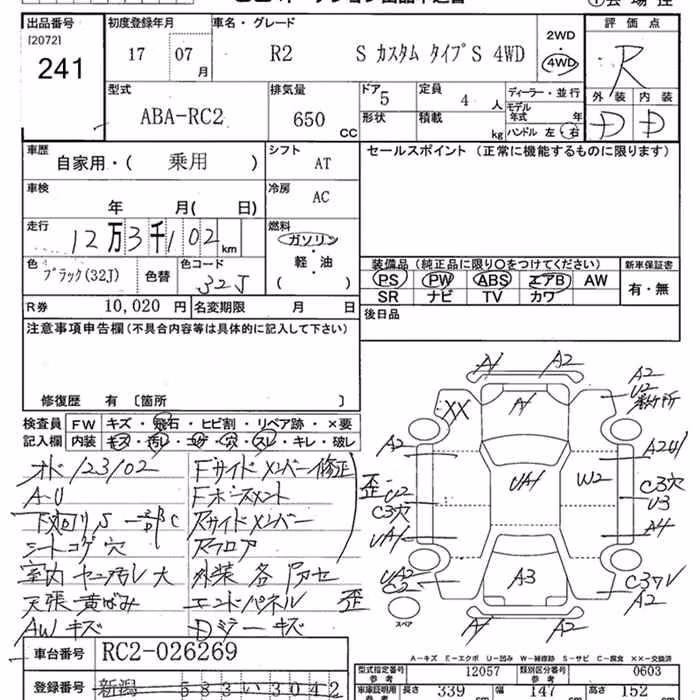 出品番号
[2072]
241
初度登録年月
17 07月
車名・グレード
R2 S カスタム タイプS 4WD
2WD
・
4WD
評価点
R
型式
ABA-RC2
排気量
650 CC
ドア 5
定員 4 人
形状
積載 kg
ディーラー・並行
モデル年式 年
ハンドル 左・右
外装 内装
D D
車歴
自家用・( 乗用 )
シフト
AT
セールスポイント (正常に機能するものに限ります)
車検
年 月( 日)
冷房
AC
走行
12万3千102km
燃料
ガソリン
軽・油
( )
色
ブラック(32J)
色替
色コード
32J
装備品 (純正品に限り○をつけてください)
PS PW ABS エアB AW
SR ナビ TV カワ
新車保証書
有・無
R券 10,020 円
名変期限 月 日
後日品
注意事項申告欄(不具合内容等は具体的に記入して下さい)
修復歴 有 〔箇所 〕
検査員記入欄
FW キズ・飛石・ヒビ割・リペア跡・×要
内装 キズ・汚レ・コゲ・穴・スレ・キレ・破レ
オド 123102
A-U
シートコゲ 穴
室内 ヤニ汚レ 大
天張 黄ばみ
AW キズ
Fサイドメンバー修正
Rサイドメンバー
Rフロア
エンドパネル 歪
歪
A1 A2
A2
U2
XX
A1
A2
A2U1
UA1
W2
U2
C3穴
C3穴
U3
UA1
A4
UA2
C2
A3
A2
A1 A2
スペア
A-キズ E-エクボ U-凹み W-補修跡 S-サビ C-腐食 ××-交換済
車台番号
RC2-026269
登録番号
新潟 583 い 3042
型式指定番号
参考
12057
類別区分番号
参考
0603
車庫証明用
参考
長さ 339 幅 147 高さ 152